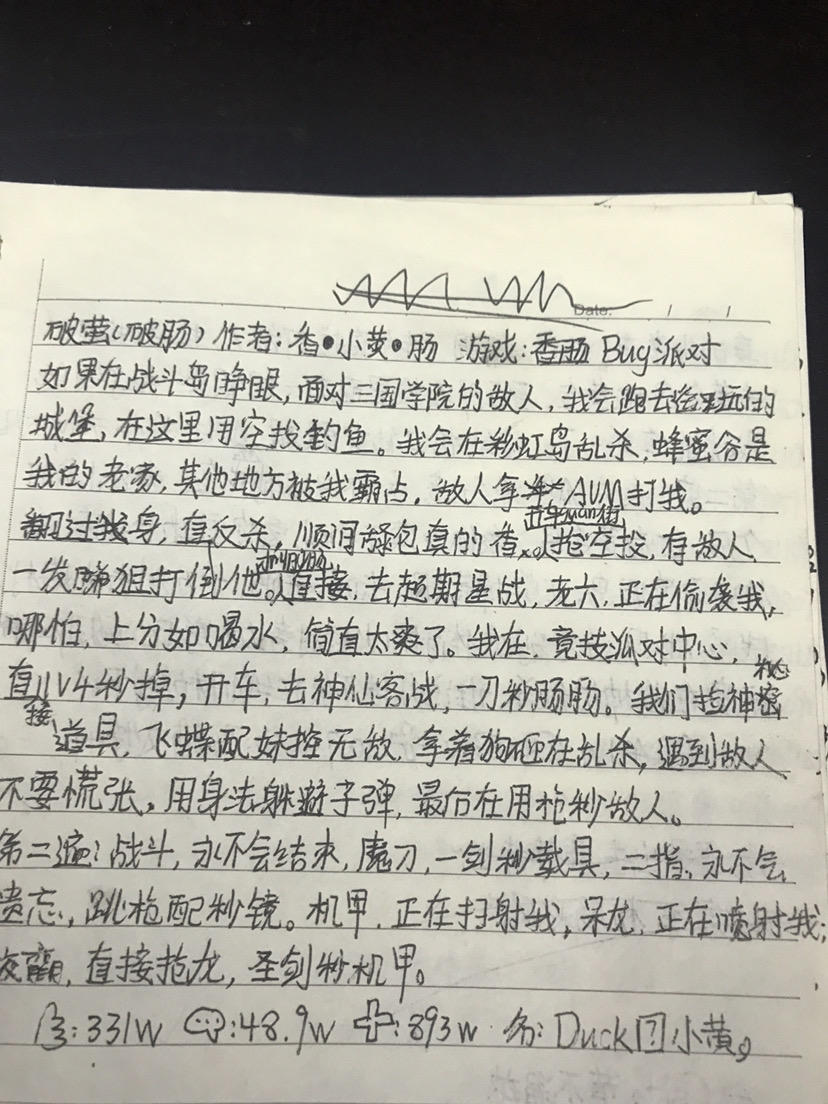 Date: / /
破茧(破肠)作者:香•小黄•肠 游戏:香肠Bug派对
如果在战斗岛睁眼,面对三国学院的敌人,我会跑去 玩的
城堡,在这里用空投钓鱼。我会在彩虹岛乱杀,蜂蜜谷是
我的老家,其他地方被我霸占,敌人拿 AVM打我。
翻过我身,直反杀,顺间舔包真的香 抢空投,有敌人
一发 狙打倒他 直接,去超期星战,老六,正在偷袭我,
哪怕,上分如喝水,简直太爽了。我在,竞技派对中心,
直接1V4秒掉,开车,去神仙客战,一刀秒肠肠。我们捡神秘
道具,飞蝶配妹控无敌,拿着狗砸在乱杀,遇到敌人
不要慌张,用身法躲避子弹,最后在用枪秒敌人。
第二遍:战斗,永不会结束,魔刀,一剑秒载具,二指,永不会,
遗忘,跳枪配秒镜。机甲,正在扫射我,呆龙,正在喷射我;
直接抢龙,圣剑秒机甲。
:331w :48.9w :893w 名:Duck团小黄。